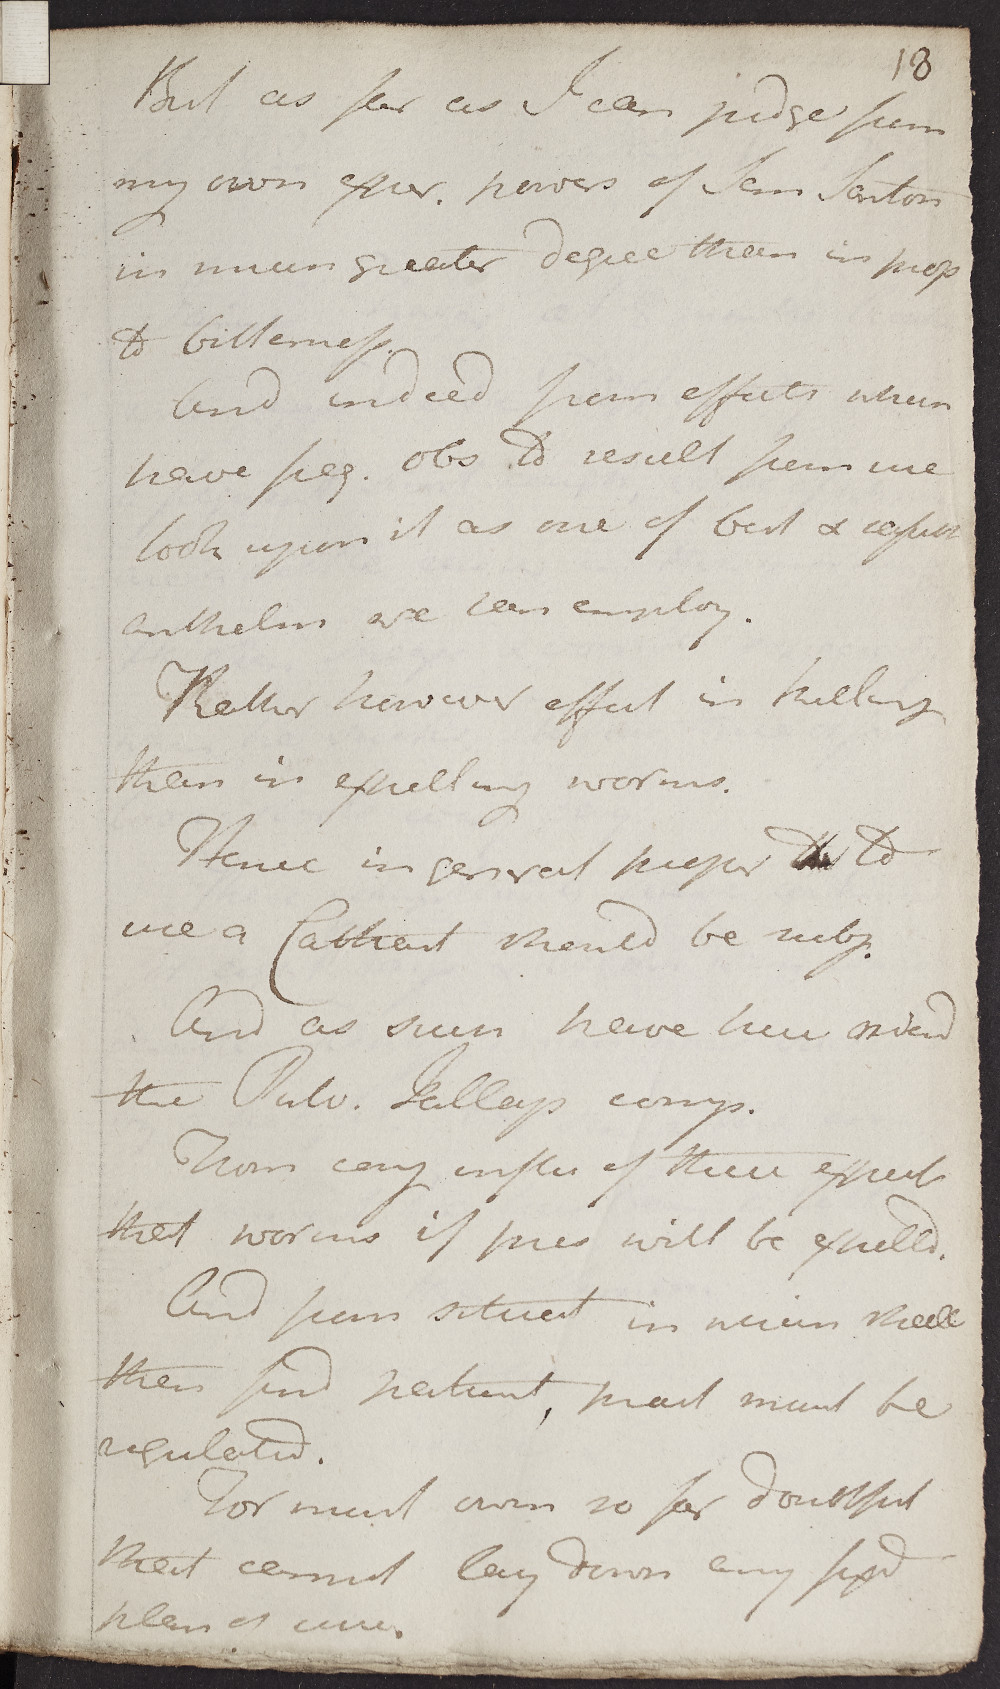 18
But as far as I can judge from
my own exper. powers of Sem Santon
in much greater degree than in prop
to bitterness.
And indeed from effects which
have freq. obs to result from use
look upon it as one of best &
anthelm we can employ.
Rather however effect in killing
than in expelling worms.
Hence in general proper to
use a Cathart should be subj.
And as such have here
the Pulv. Jallap comp.
From any of these expect
that worms if pres will be expelld.
And from situat in which shall
then find patient, pract must be
regulated.
For must own so far doubtful
that cannot lay down any fixd
plan of cure.